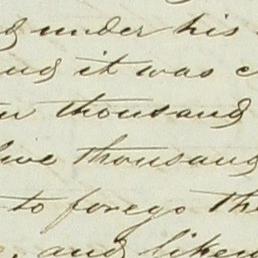 under his
and it was
thousand
five thousand
to forego the
and likew